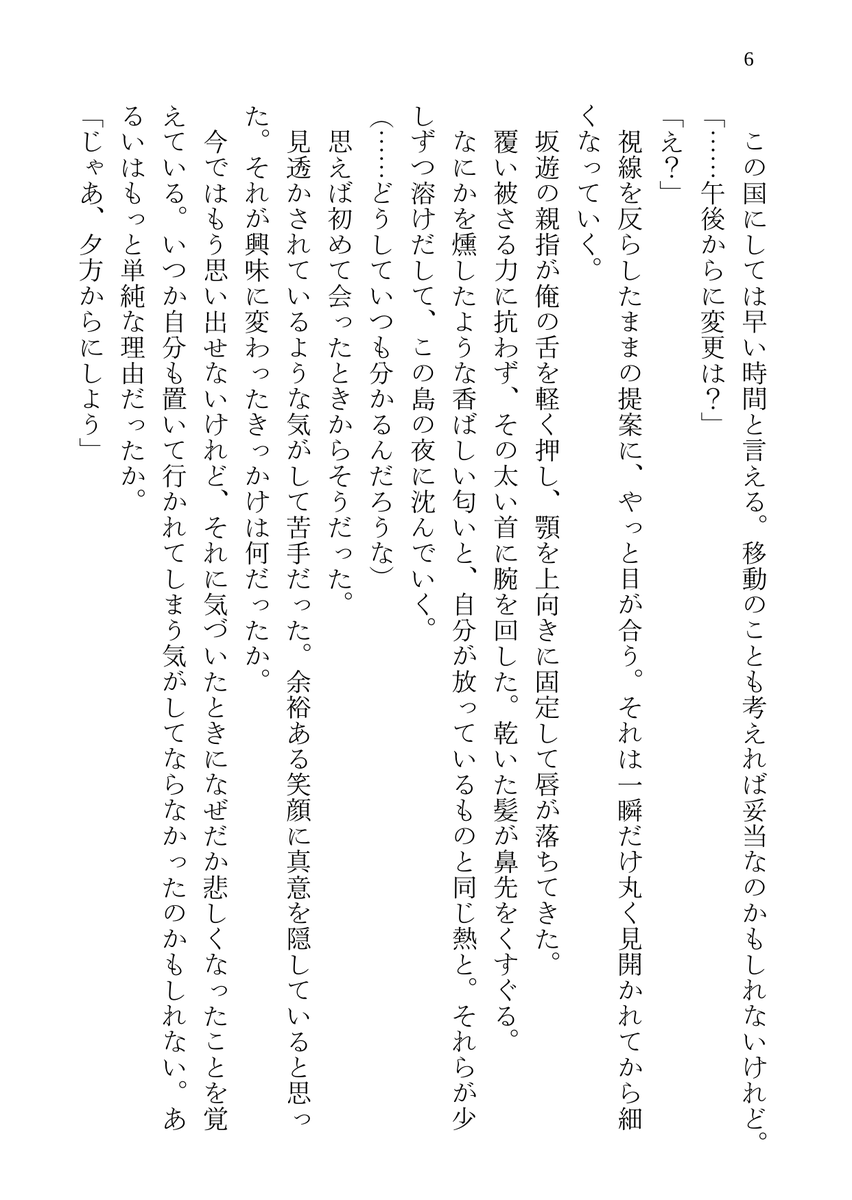 6
　この国にしては早い時間と言える。移動のことも考えれば妥当なのかもしれないけれど。
「……午後からに変更は？」
「え？」
　視線を反らしたままの提案に、やっと目が合う。それは一瞬だけ丸く見開かれてから細
くなっていく。
　坂遊の親指が俺の舌を軽く押し、顎を上向きに固定して唇が落ちてきた。
　覆い被さる力に抗わず、その太い首に腕を回した。乾いた髪が鼻先をくすぐる。
　なにかを燻したような香ばしい匂いと、自分が放っているものと同じ熱と。それらが少
しずつ溶けだして、この島の夜に沈んでいく。
（……どうしていつも分かるんだろうな）
　思えば初めて会ったときからそうだった。
　見透かされているような気がして苦手だった。余裕ある笑顔に真意を隠していると思っ
た。それが興味に変わったきっかけは何だったか。
　今ではもう思い出せないけれど、それに気づいたときになぜだか悲しくなったことを覚
えている。いつか自分も置いて行かれてしまう気がしてならなかったのかもしれない。あ
るいはもっと単純な理由だったか。
「じゃあ、夕方からにしよう」